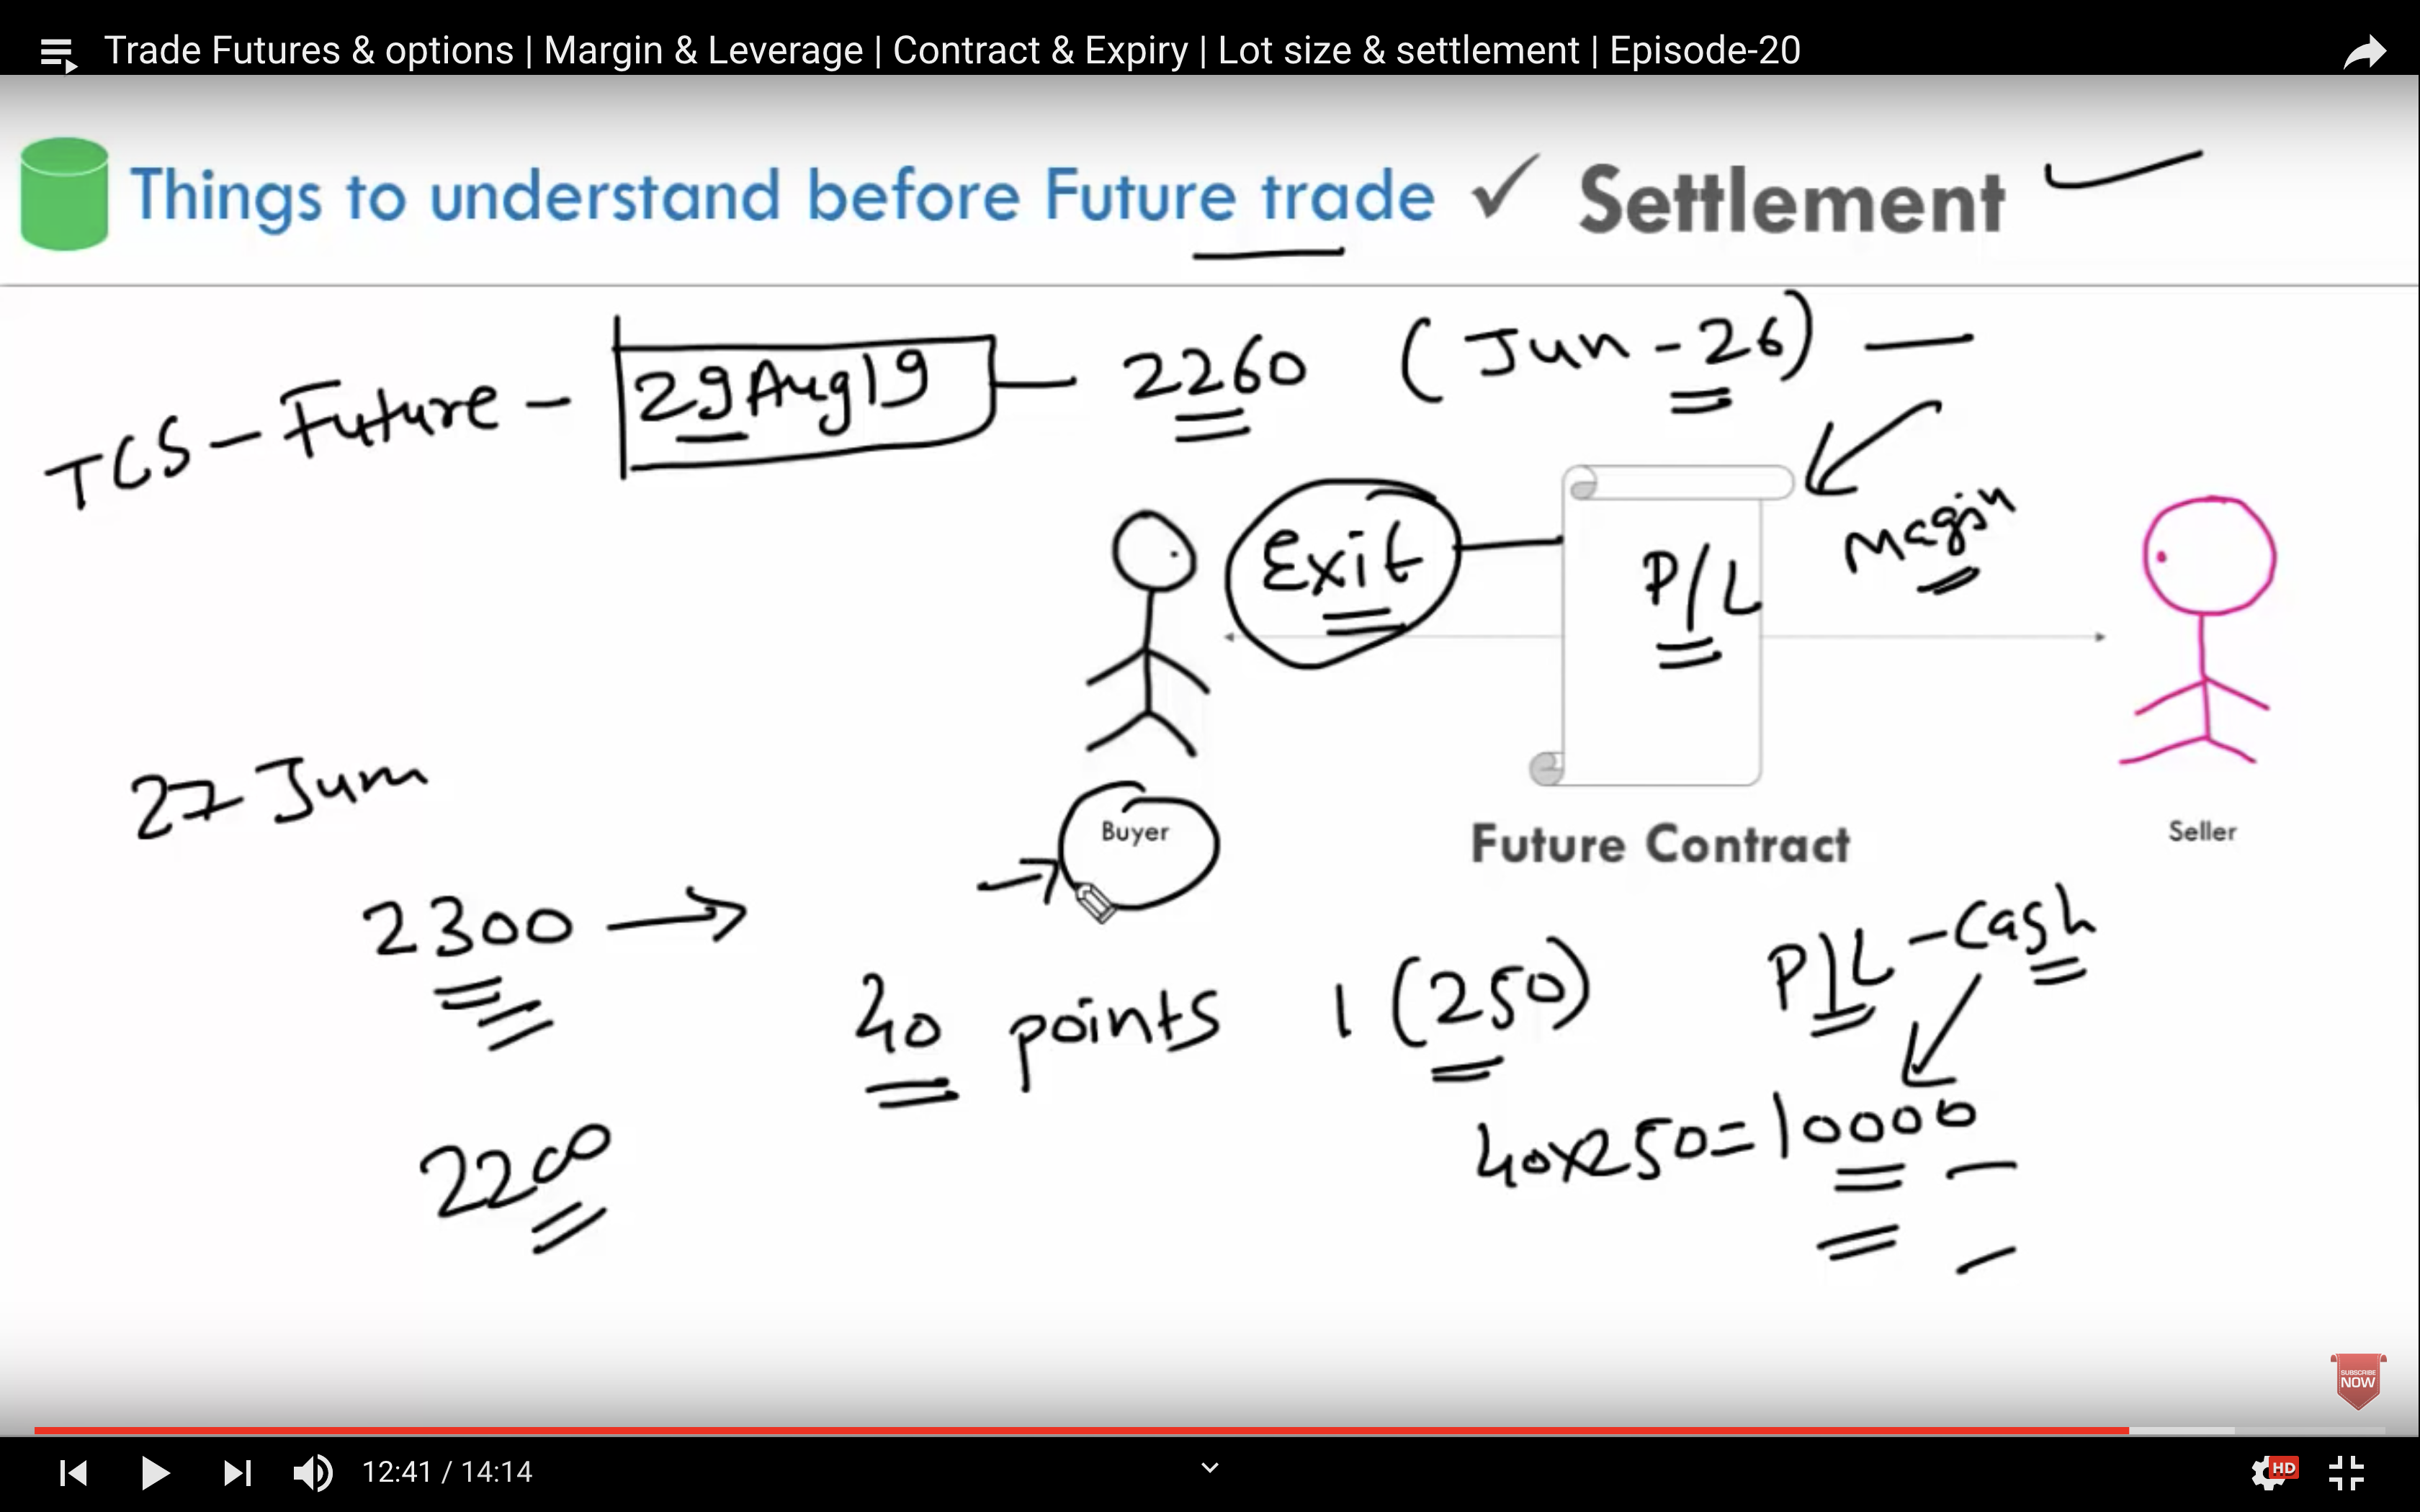 Trade Futures & options | Margin & Leverage | Contract & Expiry | Lot size & settlement | Episode-20
Things to understand before Future trade ✓ Settlement
TCS - Future - 29 Aug 19 - 2260 (Jun - 26) -
Exit
P/L
Magin
27 Jun
Buyer
Future Contract
Seller
2300 →
P/L - Cash
40 points 1 (250)
40x250=10000
2200
SUBSCRIBE
NOW
12:41 / 14:14
HD